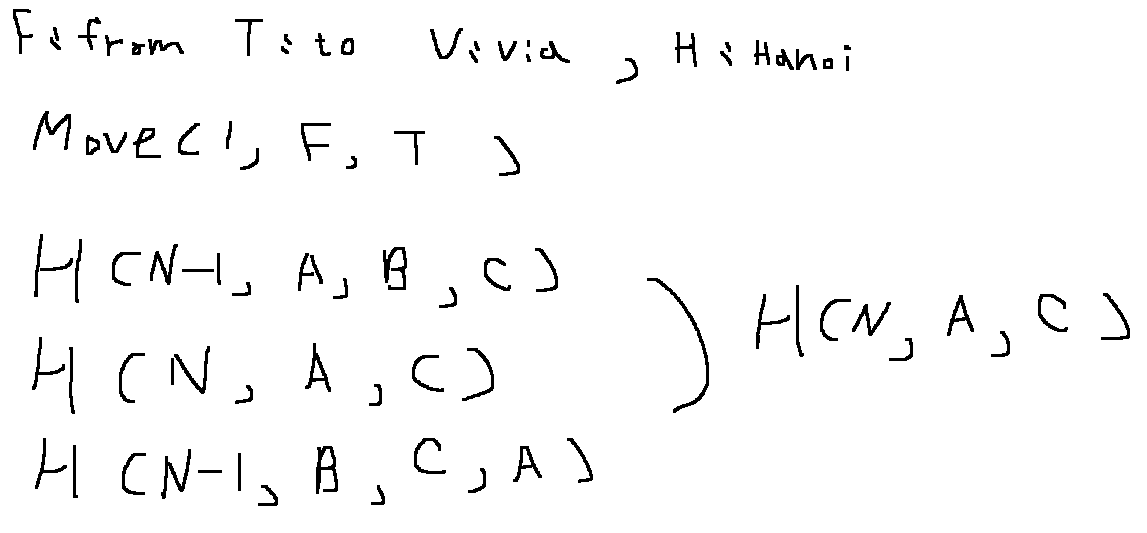 F:from T:to V:via , H:Hanoi
Move(1, F, T )
H(N-1, A, B, C)
H(N, A, C)
H(N-1, B, C, A)
H(N, A, C)